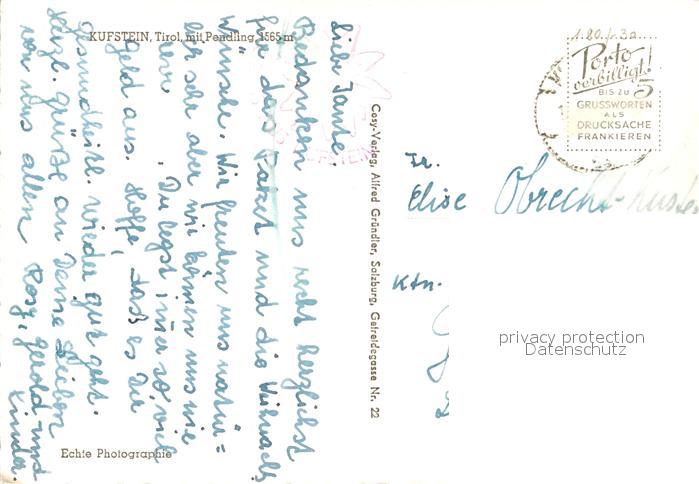 KUFSTEIN, Tirol, mit Pendling 1565 m
Liebe Tante.
Bedanken uns recht herzlichst
für das Paket und die Weihnachts
Wünsche. Wir freuten uns natür=
lich sehr aber wir können uns nie
Du legst immer so viel
Geld aus. Hoffe, daß es Dir
gesundheitl. wieder gut geht.
Herzl. Grüße an Deine Lieben
von uns allen Rosy, Gerold und
Kinder.
Echte Photographie
Cosy-Verlag, Alfred Gründler, Salzburg, Getreidegasse Nr. 22
KUFSTEIN
1.80/-30
Porto
verbilligt!
BIS ZU 5
GRUSSWORTEN
ALS
DRUCKSACHE
FRANKIEREN
Fr.
Elise Obrecht-Kuster
Ktn.
privacy protection
Datenschutz